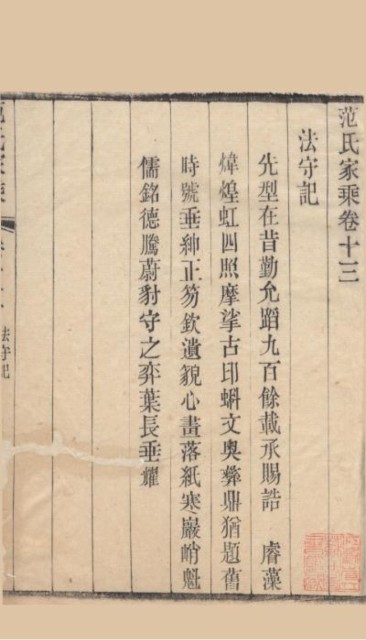 范氏家乘卷十三
法守記
先型在昔勤允蹈九百餘載承賜誥 睿藻
煒煌虹四照摩挲古印蝌文奧彝鼎猶題舊
時號垂紳正笏欽遺貌心畫落紙寒巖峭魁
儒銘德騰蔚豹守之弈葉長垂耀
范氏家乘
法守記